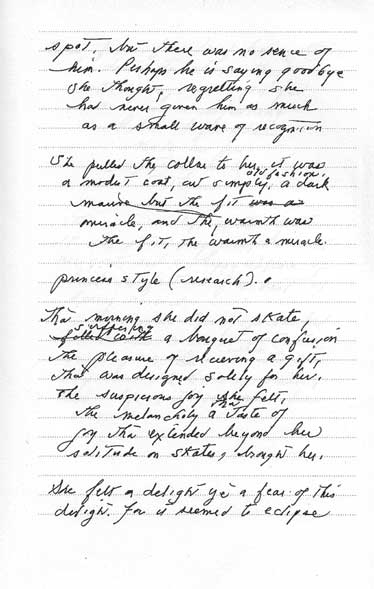 spot, but there was no sence of
him. Perhaps he is saying goodbye
she thought, regretting she
had never given him as much
as a small wave of recognition
She pulled the collar to her, it was
old fashion,
a modest coat, cut simply, a dark
mauve but the fit was a
miracle, and the warmth was
the fit, the warmth a miracle.
princess style (research).
That morning she did not skate,
suffering
filled with a bouquet of confusion
the pleasure of recieving a gift,
that was designed solely for her.
The suspicious joy she felt,
the melancholy a taste of
joy that extended beyond her
solitude on skates, brought her.
She felt a delight yet a fear of this
delight. For it seemed to eclipse